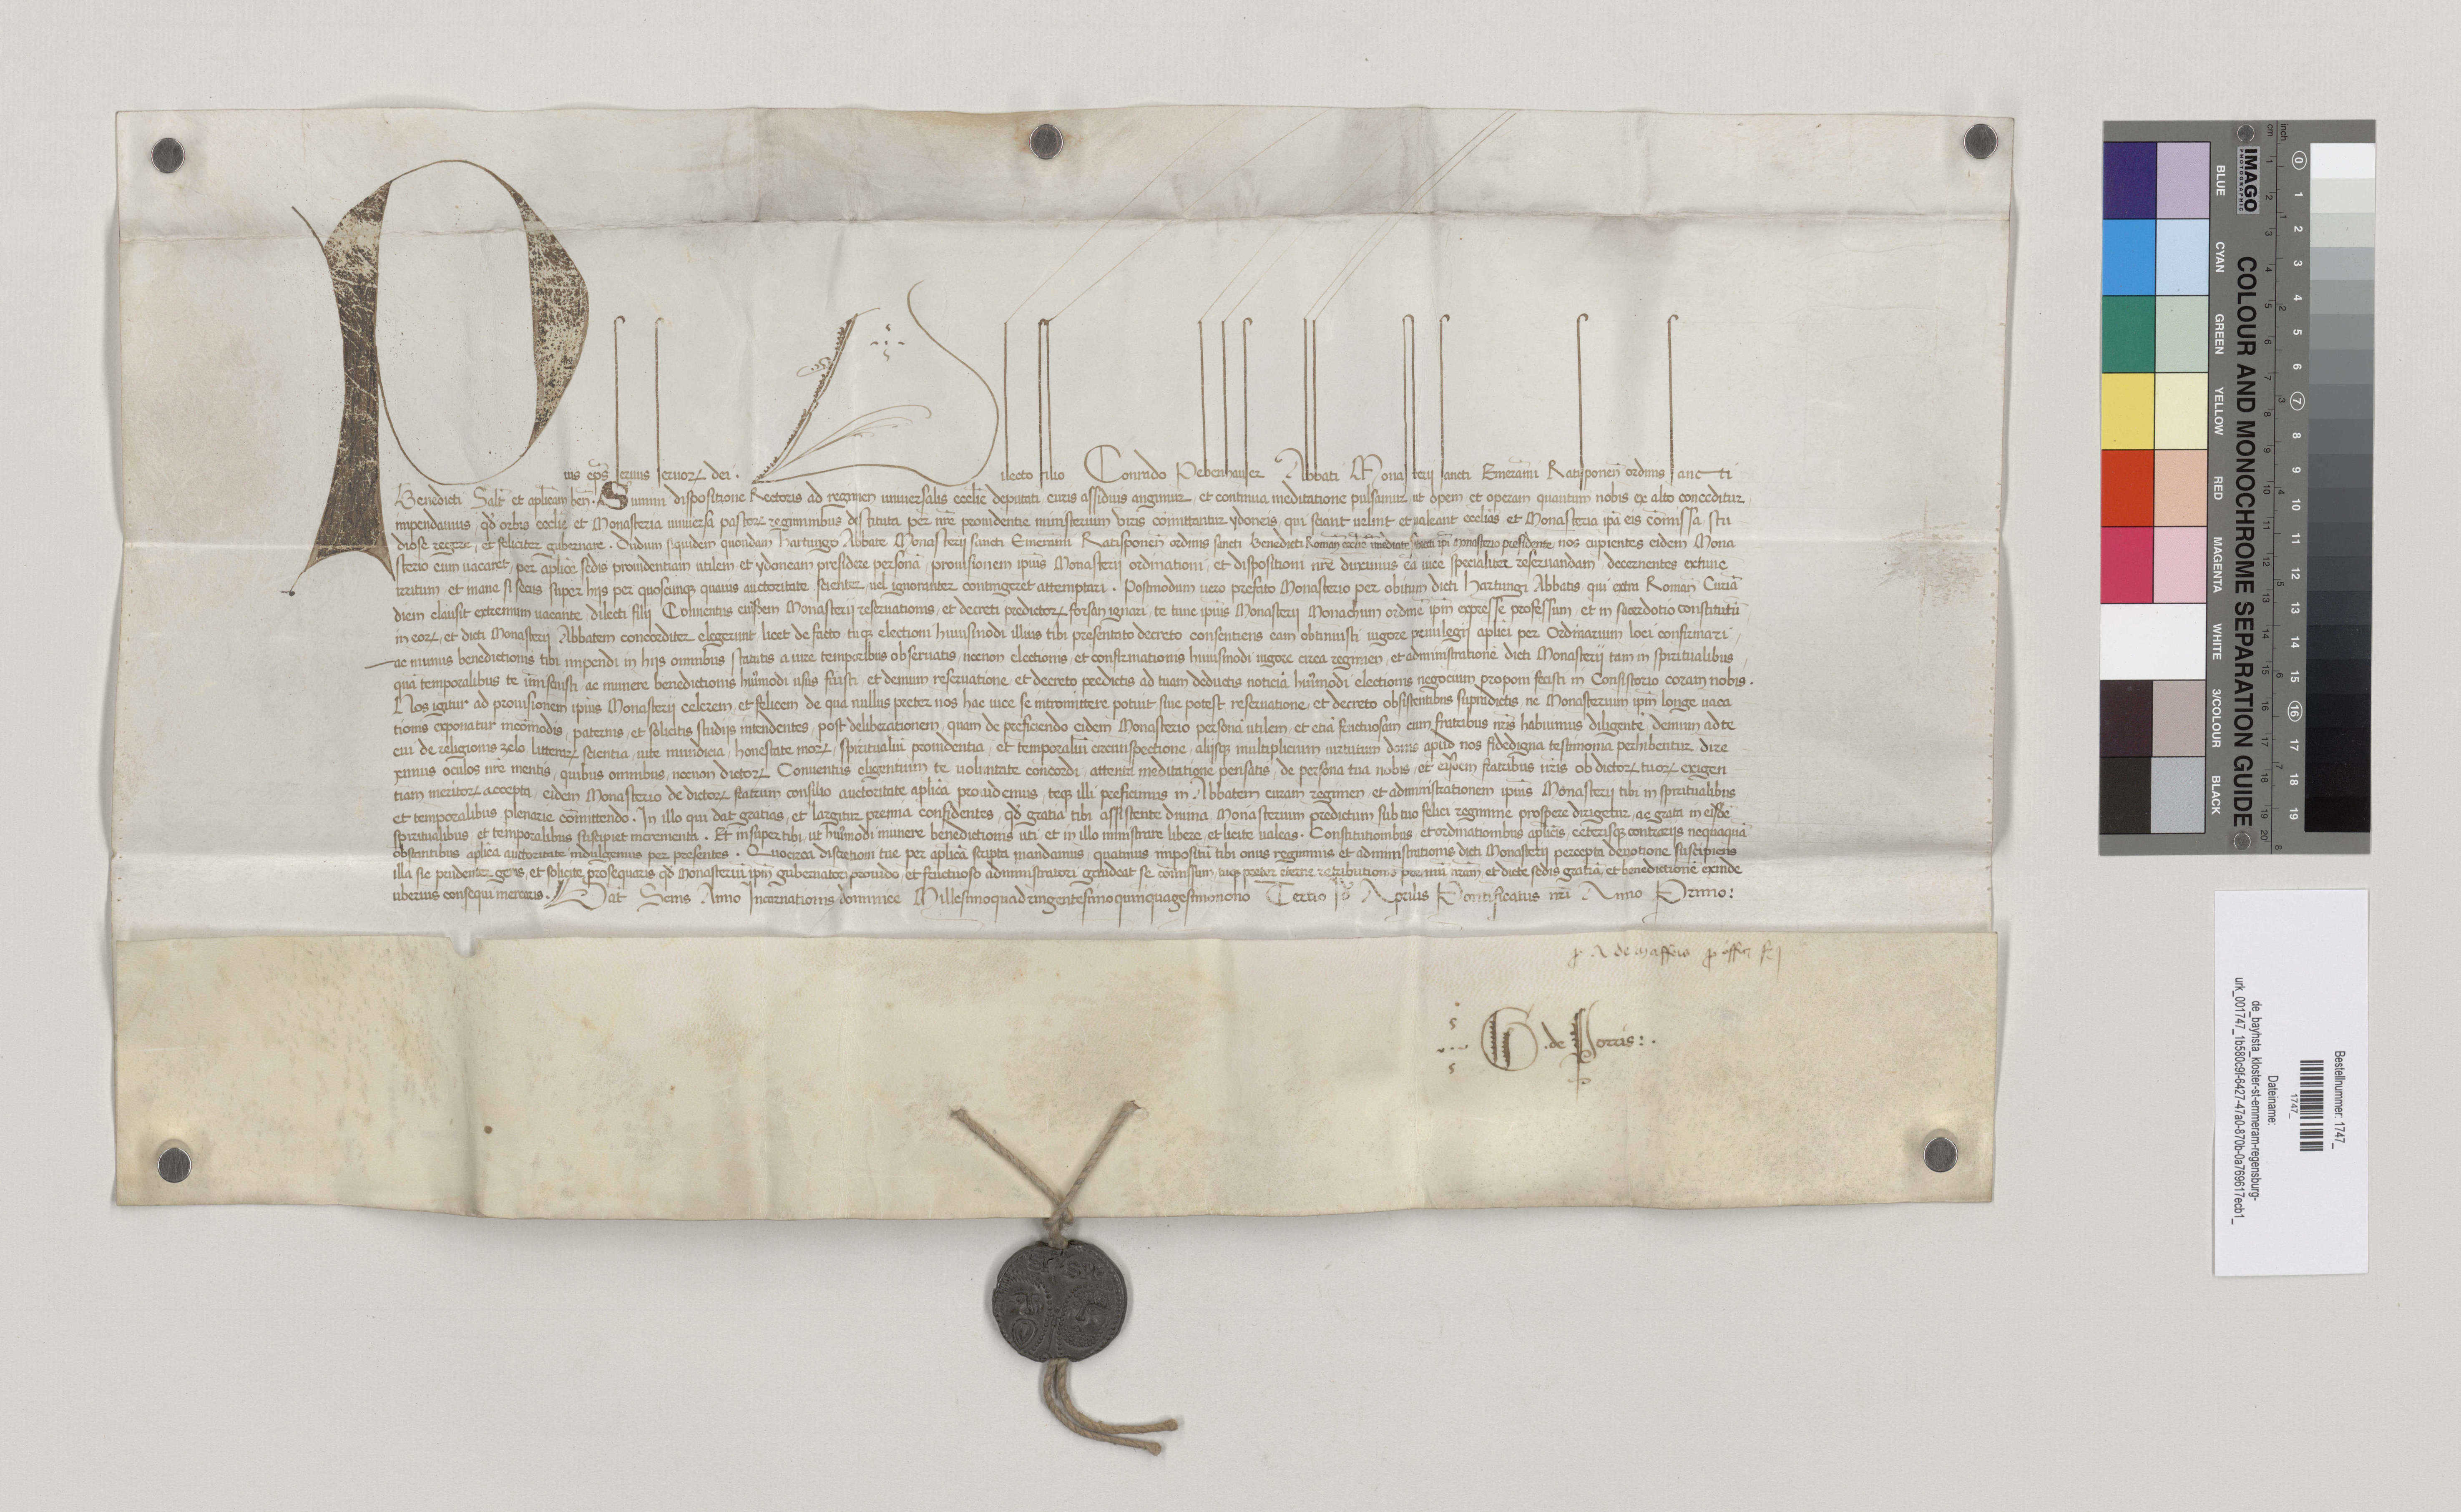 Pius ep̅s seruus seruoꝝ dei . Dilecto filio Conrado Pebenhauser Abbati Monasterij sancti Emerammi Ratisponeñ ordinis sancti
Benedicti Salt̅ et aplicam ben̅ . Summi dispositione Rectoris ad regimen uniuersalis ecclie deputati curis assiduis angimur, et continua meditatione pulsamur ut opem et operam quantum nobis ex alto conceditur
impendamus, qd̛ orbis ecclie et Monasteria uniuersa pastoꝝ regiminibus destituta per nr̅e prouidentie ministerium Viris comittantur ydoneis, qui sciant uelint et ualeant ecclias et Monasteria ip̅a eis com̅issa, stu
diose regere, et feliciter gubernare . Dudum siquidem quondam Hartungo Abbate Monasterij sancti Emerammi Ratisponeñ ordinis sancti Benedicti Roman̅ ecclie im̅ediate subiecti ip̅i Monasterio presidente nos cupientes eidem Mona
sterio cum uacaret, per aplice sedis prouidentiam utilem et ydoneam presidere persona̅, prouisionem ipius Monasterij ordinationi, et dispositioni nr̅e duximus ea̅ uice specialiter reseruandam decernentes extunc
irritum et inane si secus super hijs per quoscunqꝫ quauis auctoritate scienter uel ignoranter contingeret attemptari . Postmodum uero prefato Monasterio per obitum dicti Hartungi Abbatis qui extra Roman̅ Curia̅
diem clausit extremum uacante, dilecti filij Conuentus eiusdem Monasterij reseruationis, et decreti predictoꝝ forsan ignari, te tunc ipius Monasterij Monachum ordine̅ ip̅m expresse professum, et in sacerdotio constitutu̅
in eoꝝ, et dicti Monasterij Abbatem concorditer elegerunt licet de facto tuqꝫ electioni huiusmodi illius tibi presentato decreto consentiens eam obtinuisti uigore priuilegij aplici per Ordinarium loci confirmari,
ac munus benedictionis tibi impendi in hijs omnibus statutis a iure temporibus obseruatis, necnon electionis, et confirmationis huiusmodi uigore circa regimen, et administratione̅ dicti Monasterij tam in spiritualibus,
qua̅ temporalibus te im̅iscuisti, ac munere benedictionis hui̅modi usus fuisti et demum reseruatione et decreto predictis ad tuam deductis noticia̅ hui̅modi electionis negocium proponi fecisti in Consistorio coram nobis .
Nos igitur ad prouisionem ipius Monasterij celerem, et felicem de qua nullus preter nos hac uice se intromittere potuit siue potest reseruatione et decreto obsistentibus supradictis, ne Monasterium ip̅m longe uaca
tionis exponatur incomodis, paternis, et solicitis studijs intendentes, post deliberationem, quam de preficiendo eidem Monasterio persona̅ utilem, et etia̅ fructuosam cum fratribus nr̅is habuimus diligente̅, demum ad te
cui de religionis zelo, litteraꝝ scientia, uite mundicia, honestate moꝝ, spiritualiu̅ prouidentia, et temporaliu̅ circunspectione, alijsqꝫ multiplicium uirtutum donis apud nos fidedigna testimonia perhibentur dire
ximus oculos nr̅e mentis, quibus omnibus, necnon dictoꝝ Conuentus eligentium te uoluntate concordi, attenta meditatione pensatis, de persona tua nobis, et eisdem fratribus nr̅is ob dictoꝝ tuoꝝ exigen
tiam meritoꝝ accepta, eidem Monasterio de dictoꝝ fratrum consilio auctoritate aplica prouidemus, teqꝫ illi preficimus in Abbatem curam regimen et administrationem ipius Monasterij tibi in spiritualibus
et temporalibus plenarie comittendo . In illo qui dat gratias, et largitur premia confidentes, qd̛ gratia tibi assistente diuina Monasterium predictum sub tuo felici regimine prospere dirigetur, ac grata in eisde̅
spiritualibus, et temporalibus suscipiet incrementa . Et insuper tibi, ut hui̅modi munere benedictionis uti, et in illo ministrare libere, et licite ualeas . Constitutionibus et ordinationibus aplicis, ceterisqꝫ contrarijs nequaqua̅
obstantibus aplica auctoritate indulgemus per presentes . Quocirca discretioni tue per aplica scripta mandamus, quatinus impositu̅ tibi onus regiminis et administrationis dicti Monasterij percepta deuotione suscipiens
illa sic prudenter geras, et solicite prosequaris qd̛ Monasteriu̅ ip̅m gubernatori prouido, et fructuoso administratori gaudeat se com̅issum, tuqꝫ preter eterne retributionis premiu̅ nr̅am, et dicte sedis gratia̅, et benedictione̅ exinde
uberius consequi merearis . Dat̅ Senis Anno Incarnationis dominice Millesimoquadringentesimoquinquagesimonono Tertio Id̅ Aprilis Pontificatus nr̅i Anno Primo :
p A de Maffeis
G . de Porris : .
IMAGO
PHOTOGRAPHIC
COLOUR AND MONOCHROME SEPARATION GUIDE
BLUE
CYAN
GREEN
YELLOW
RED
MAGENTA
WHITE
3/COLOUR
BLACK
cm
inch
0 1 2 3 4 5 6 7 8 9 10 11 12 13 14 15 16 17 18 19
Bestellnummer: 1747_
1747_
Dateiname:
de_bayhsta_kloster-st-emmeram-regensburg-
urk_001747_1b580c9f-6427-47a0-870b-0a769617ecb1_